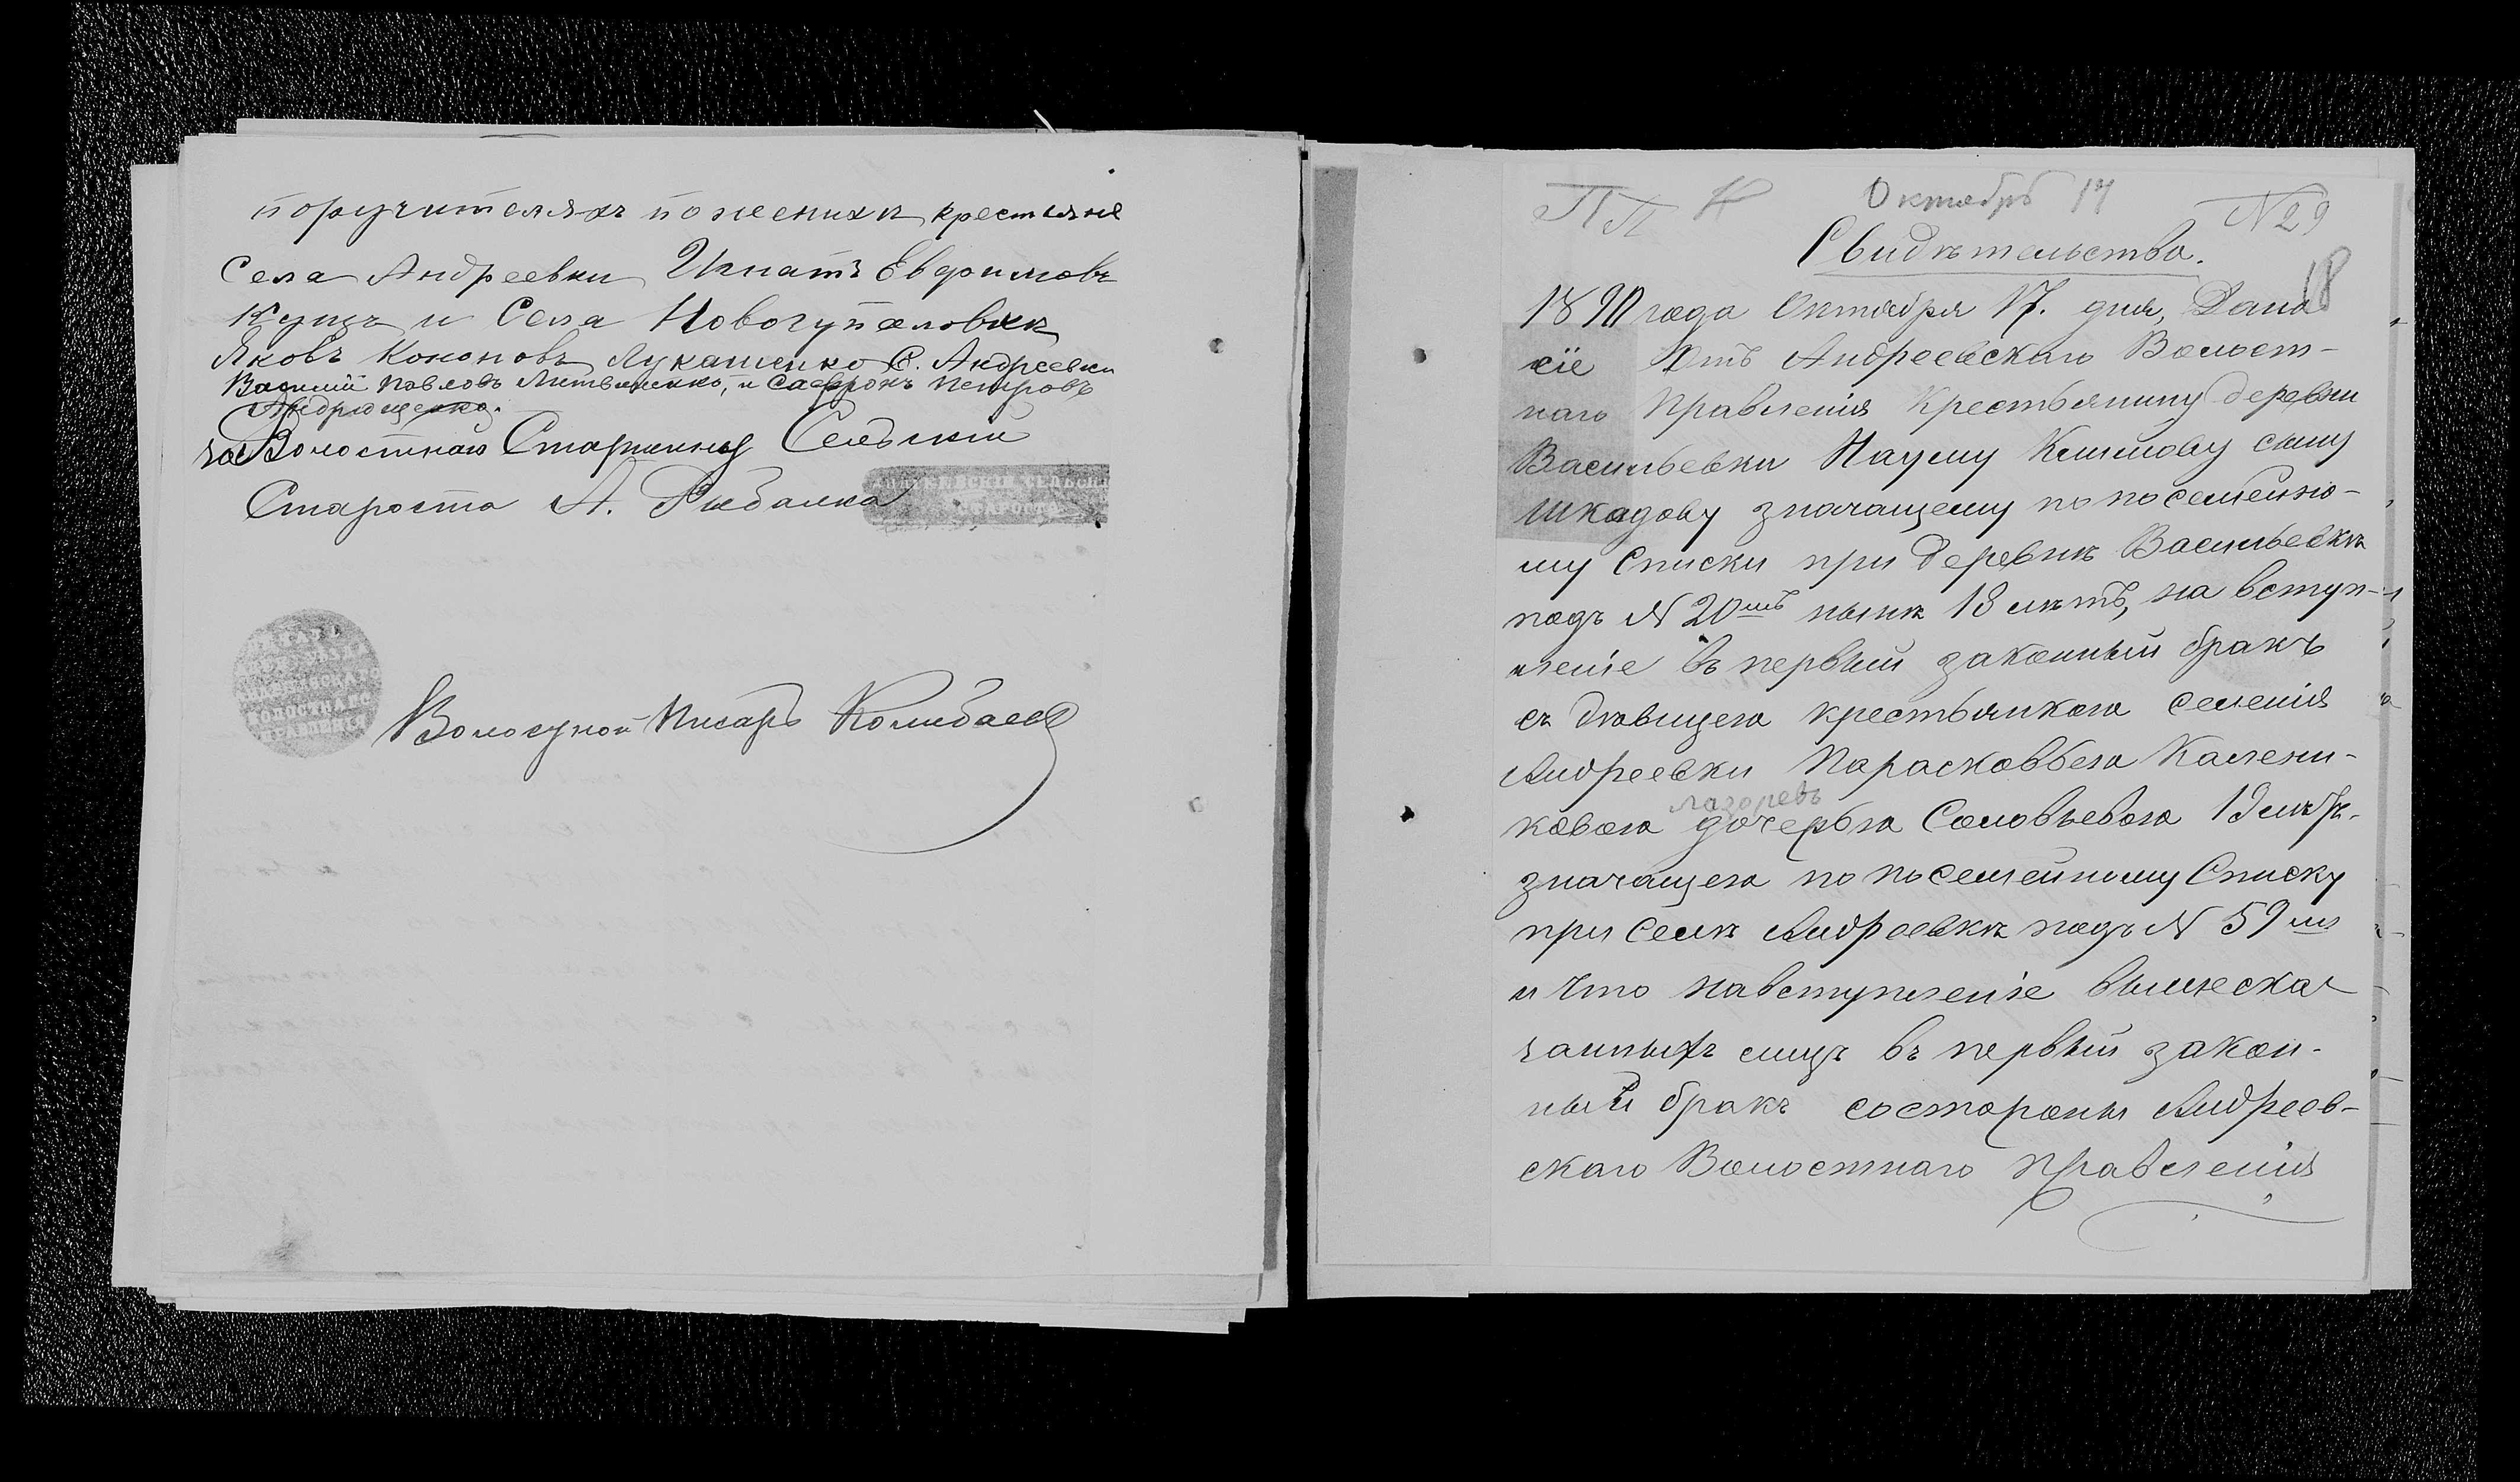 поручителяхъ по женихѣ крестьяне
Села Андреевки Игнатъ Евфимовъ
Куцъ и Села Новогупаловки
Яковъ Кононовъ Лукашенко С. Андреевки
Василій Павловъ Литвиненко, и Сафронъ Петровъ
Андрющенко.
за Волостнаго Старшину Сельскій
Староста А. Рыбалка
СЕЛЬСКІЙ
СТАРОСТА
ПЕЧАТЬ
ВОЛОСТНАГО
ПРАВЛЕНІЯ
Волостной Писарь
ПП Октябрь 17 N 29
Свидѣтельство.
18
1890 года Октября 17. дня, Дано
сіе Отъ Андреевскаго Волост-
наго Правленія Крестьянину деревни
Васильевки Науму Климову сыну
Шкадову значащему по посемейно-
му Списки при деревнѣ Васильевкѣ
подъ N 20мъ нынѣ 18 лѣтъ, на вступ-
леніе въ первый законный бракъ
съ дѣвицею крестьянкою селенія
Андреевки Парасковьею Калени-
лазоревъ
ковою дочерью Соловьевою 19 лѣтъ.
значащею по посемейному Списку
при Селѣ Андреевкѣ подъ N 59мъ
и что навступленіе вышеска-
занныхъ лицъ въ первый закон-
ный бракъ состороны Андреев-
скаго Волостнаго Правленія